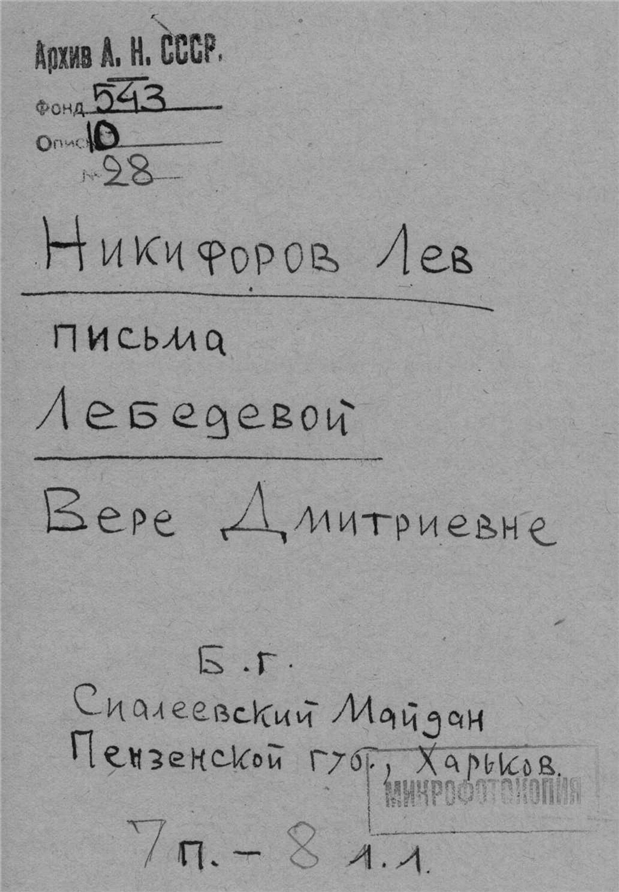 Архив А. Н. СССР.
Фонд 543
Опись 10
№ 28
Никифоров Лев
письма
Лебедевой
Вере Дмитриевне
Б.г.
Сиалеевский Майдан
Пензенской губ., Харьков.
МИКРОФОТОКОПИЯ
7 п. – 8 л.л.